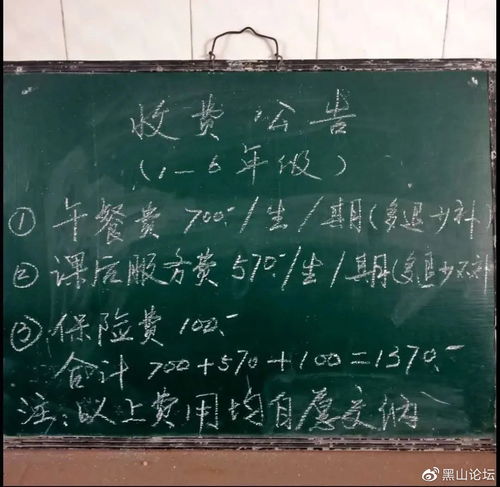 收费公告
(1-6年级)
① 午餐费 700.-/生/期(多退少补)
② 课后服务费 570.-/生/期(多退少不补
③ 保险费 100.-
合计 700+570+100=1370.-
注:以上费用均自愿交纳
黑山论坛